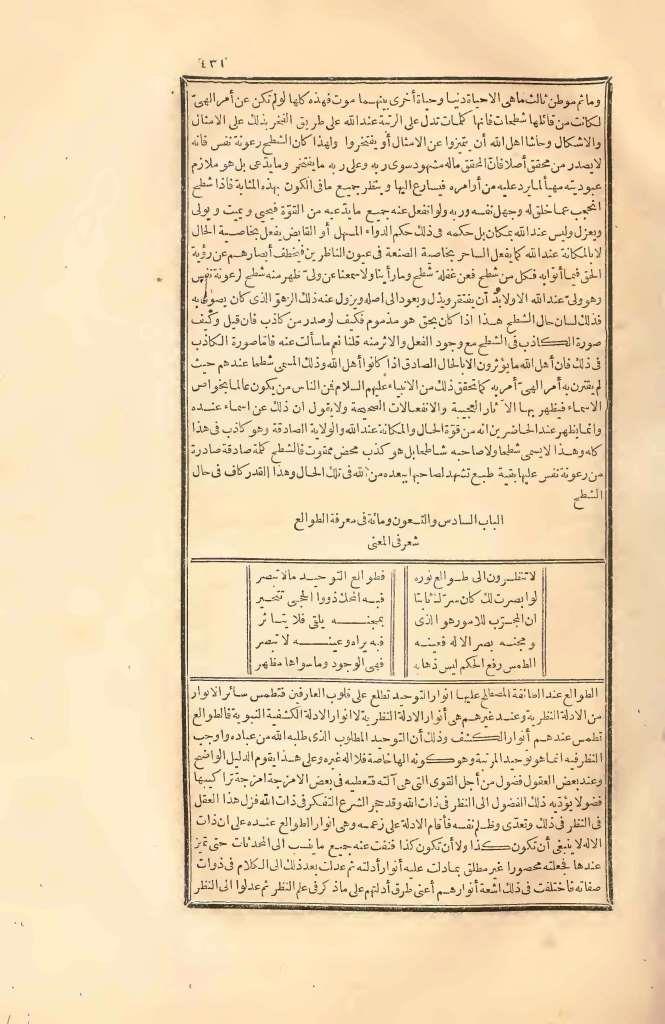 ٤٣١
وما ثم موطن ثالث ما هي الا حياة دنيا وحياة أخرى بينهما موت فهذه كلها لو لم تكن عن أمر الهيّ
لكانت من قائلها شطحات فانها كلمات تدل على الرتبة عند الله على طريق الفخر بذلك على الامثال
والاشكال وحاشا اهل الله أن يتميزوا عن الامثال أو يفتخروا ولهذا كان الشطح رعونة نفس فانه
لا يصدر من محقق أصلا فان المحقق ماله مشهود سوى ربه وعلى ربه ما يفتخر وما يدعي بل هو ملازم
عبوديته مهيأ لما يرد عليه من أوامره فيسارع اليها وينظر جميع ما في الكون بهذه المثابة فاذا شطح
انحجب عما خلق له وجهل نفسه وربه ولو انفعل عنه جميع ما يدّعيه من القوّة فيحيى ويميت ويولى
ويعزل وليس عند الله بمكان بل حكمه في ذلك حكم الدواء المسهل أو القابض يفعل بخاصية الحال
لا بالمكانة عند الله كما يفعل الساحر بخاصية الصنعة في عيون الناظرين فيخطف أبصارهم عن رؤية
الحق فيما أتوا به فكل من شطح فعن غفلة شطح وما رأينا ولا سمعنا عن ولىّ ظهر منه شطح لرعونة نفس
وهو ولىّ عند الله الا ولا بدّ أن يفتقر ويذل ويعود الى أصله ويزول عنه ذلك الزهو الذي كان يصول به
فذلك لسان حال الشطح هذا اذا كان بحق هو مذموم فكيف لو صدر من كاذب فان قيل وكيف
صورة الكاذب في الشطح مع وجود الفعل والاثر منه قلنا نعم ما سألت عنه فاما صورة الكاذب
في ذلك فان أهل الله ما يؤثرون الا بالحال الصادق اذا كانوا أهل الله وذلك المسمى شطحا عندهم حيث
لم يقترن به أمر الهيّ أمر به كما تحقق ذلك من الانبياء عليهم السلام فمن الناس من يكون عالما بخواص
الاسماء فيظهر بها الآثار العجيبة والانفعالات الصحيحة ولا يقول ان ذلك عن اسماء عنده
وانما يظهر عند الحاضرين انه من قوة الحال والمكانة عند الله والولاية الصادقة وهو كاذب في هذا
كله وهذا لا يسمى شطحا ولا صاحبه شاطحا بل هو كذب محض ممقوت فالشطح كلمة صادقة صادرة
من رعونة نفس عليها بقية طبع تشهد لصاحبها ببعده من الله في تلك الحال وهذا القدر كاف في حال
الشطح
الباب السادس والتسعون ومائة في معرفة الطوالع
شعر في المعنى
لا تنظرون الى طوالع نوره فطوالع التوحيد ما لا تبصر
لو أبصرت لك كان سرّك ثابتا فيه انحك ذووا الحجى تتحير
ان المجرّب للامور هو الذى بمجنه يلقى فلا يتأثر
ومجنه بصر الاله فعينه فبه يراه وعينه لا تبصر
الطمس رفع الحكم ليس ذهابه فهي الوجود وما سواها مظهر
الطوالع عند الطائفة المصطلح عليها أنوار التوحيد تطلع على قلوب العارفين فتطمس سائر الانوار
من الادلة النظرية وعند غيرهم هي أنوار الادلة النظرية لا أنوار الادلة الكشفية النبوية فالطوالع
تطمس عندهم أنوار الكشف وذلك أن التوحيد المطلوب الذي طلبه الله من عباده وأوجب
النظر فيه انما هو توحيد المرتبة وهو كونه الها خاصة فلا اله غيره وعلى هذا يقوم الدليل الواضح
وعند بعض العقول فضول من أجل القوى التي هي آلته فتعطيه في بعض الامزجة امزجة تراكيبها
فضولا يؤدّيه ذلك الفضول الى النظر في ذات الله وقد حجر الشرع التفكر في ذات الله فزل هذا العقل
في النظر في ذلك وتعدّى وظلم نفسه فأقام الادلة على زعمه وهي أنوار الطوالع عنده على ان ذات
الاله لا ينبغي أن تكون كذا ولا أن تكون كذا فنفت عنه جميع ما ينسب الى المحدثات حتى تميز
عندها فجعلته محصورا غير مطلق بما دلت عليه أنوار أدلته ثم عدلت بعد ذلك الى الكلام في ذوات
صفاته فاختلفت في ذلك اشعة أنوارهم أعني طرق أدلتهم على ما ذكر في علم النظر ثم عدلوا الى النظر